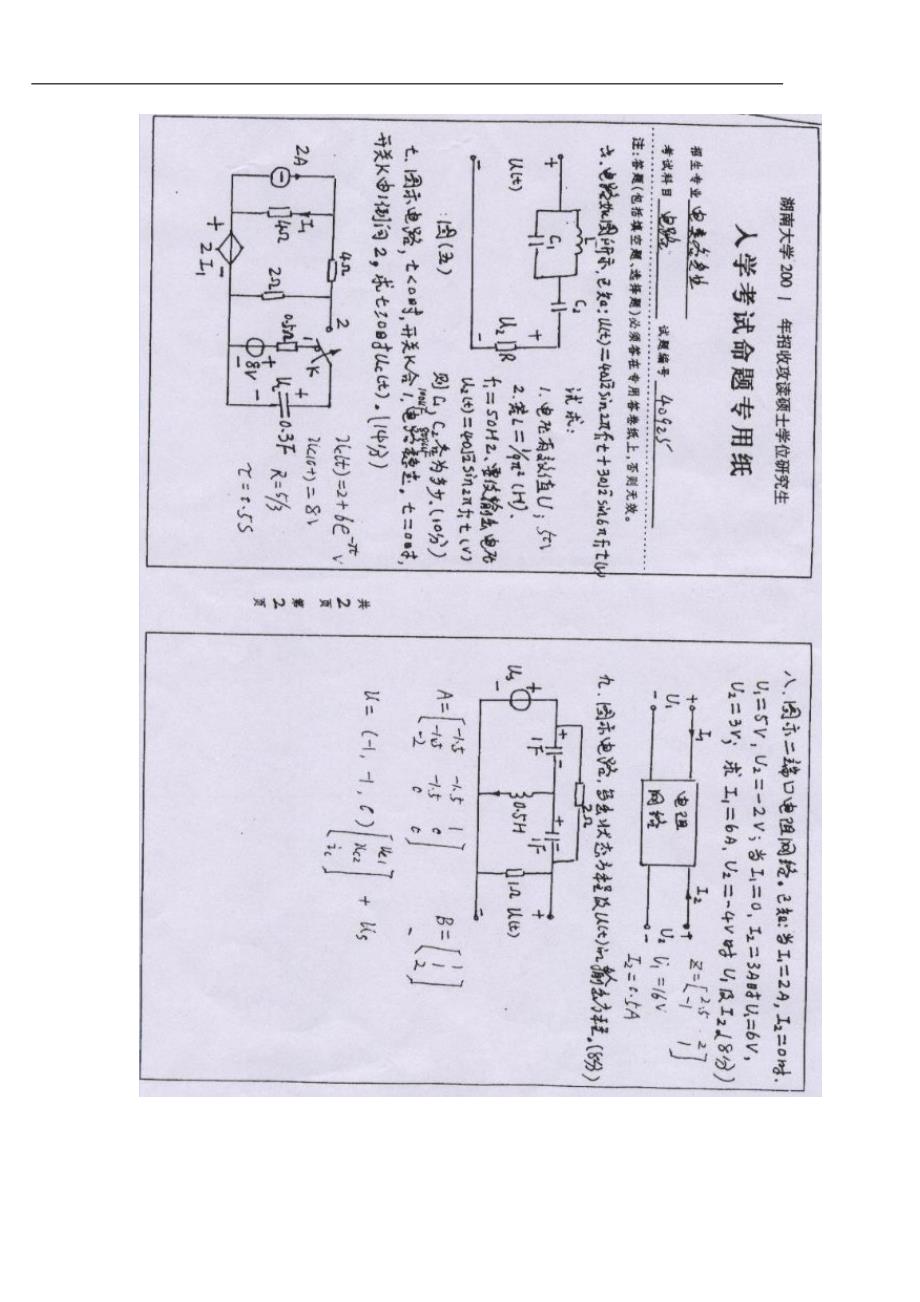 湖南大学200 1 年招收攻读硕士学位研究生
入学考试命题专用纸
招生专业
考试科目 电路 试题编号 40925
注:答题(包括填空题、选择题)必须答在专用答卷纸上,否则无效。
六、电路如图所示,已知:U(t)=40√2sin2πf₁t+30√2sin6πf₁t(v)
试求:
1.电压有效值U; 50V
2.若L=1/9π²(H).
f₁=50HZ.要使输出电压
U₂(t)=40√2sin2πf₁t(v)
则C₁,C₂各为多少.(10分)
+
U(t)
-
L
C₁
C₂
+
U₂
R
-
图(五)
七.图示电路,t<0时,开关K合1,电路稳定。t=0时,
开关K由1倒向2,求t≥0时Uc(t)。(14分)
2A
I₁
4Ω
4Ω
2Ω
+ 2I₁ -
2
1
K
0.5Ω
+
8V
-
+
Uc
-
0.3F
Uc(t)=2+6e⁻²ᵗ V
Uc(0+)=8V
R=5/3
τ=0.5S
共 2 页 第 2 页
八.图示二端口电阻网络。已知:当I₁=2A,I₂=0时.
U₁=5V,U₂=-2V;当I₁=0,I₂=3A时U₁=6V,
U₂=3V;求I₁=6A,U₂=-4V时U₁及I₂(8分)
+
I₁
U₁
-
电阻
网络
I₂
+
U₂
-
Z=[2.5 2
-1 1]
U₁=16V
I₂=0.5A
九.图示电路.写出状态方程及U(t)的输出方程。(8分)
2Ω
Us
+
-
+ 1F -
+ 1F -
0.5H
1Ω
+
U(t)
-
A=[-1.5 -1.5 1
-1.5 -1.5 0
-2 0 0]
B=[1
1
2]
U=(-1,-1,0)[Uc1
Uc2
iL] + Us